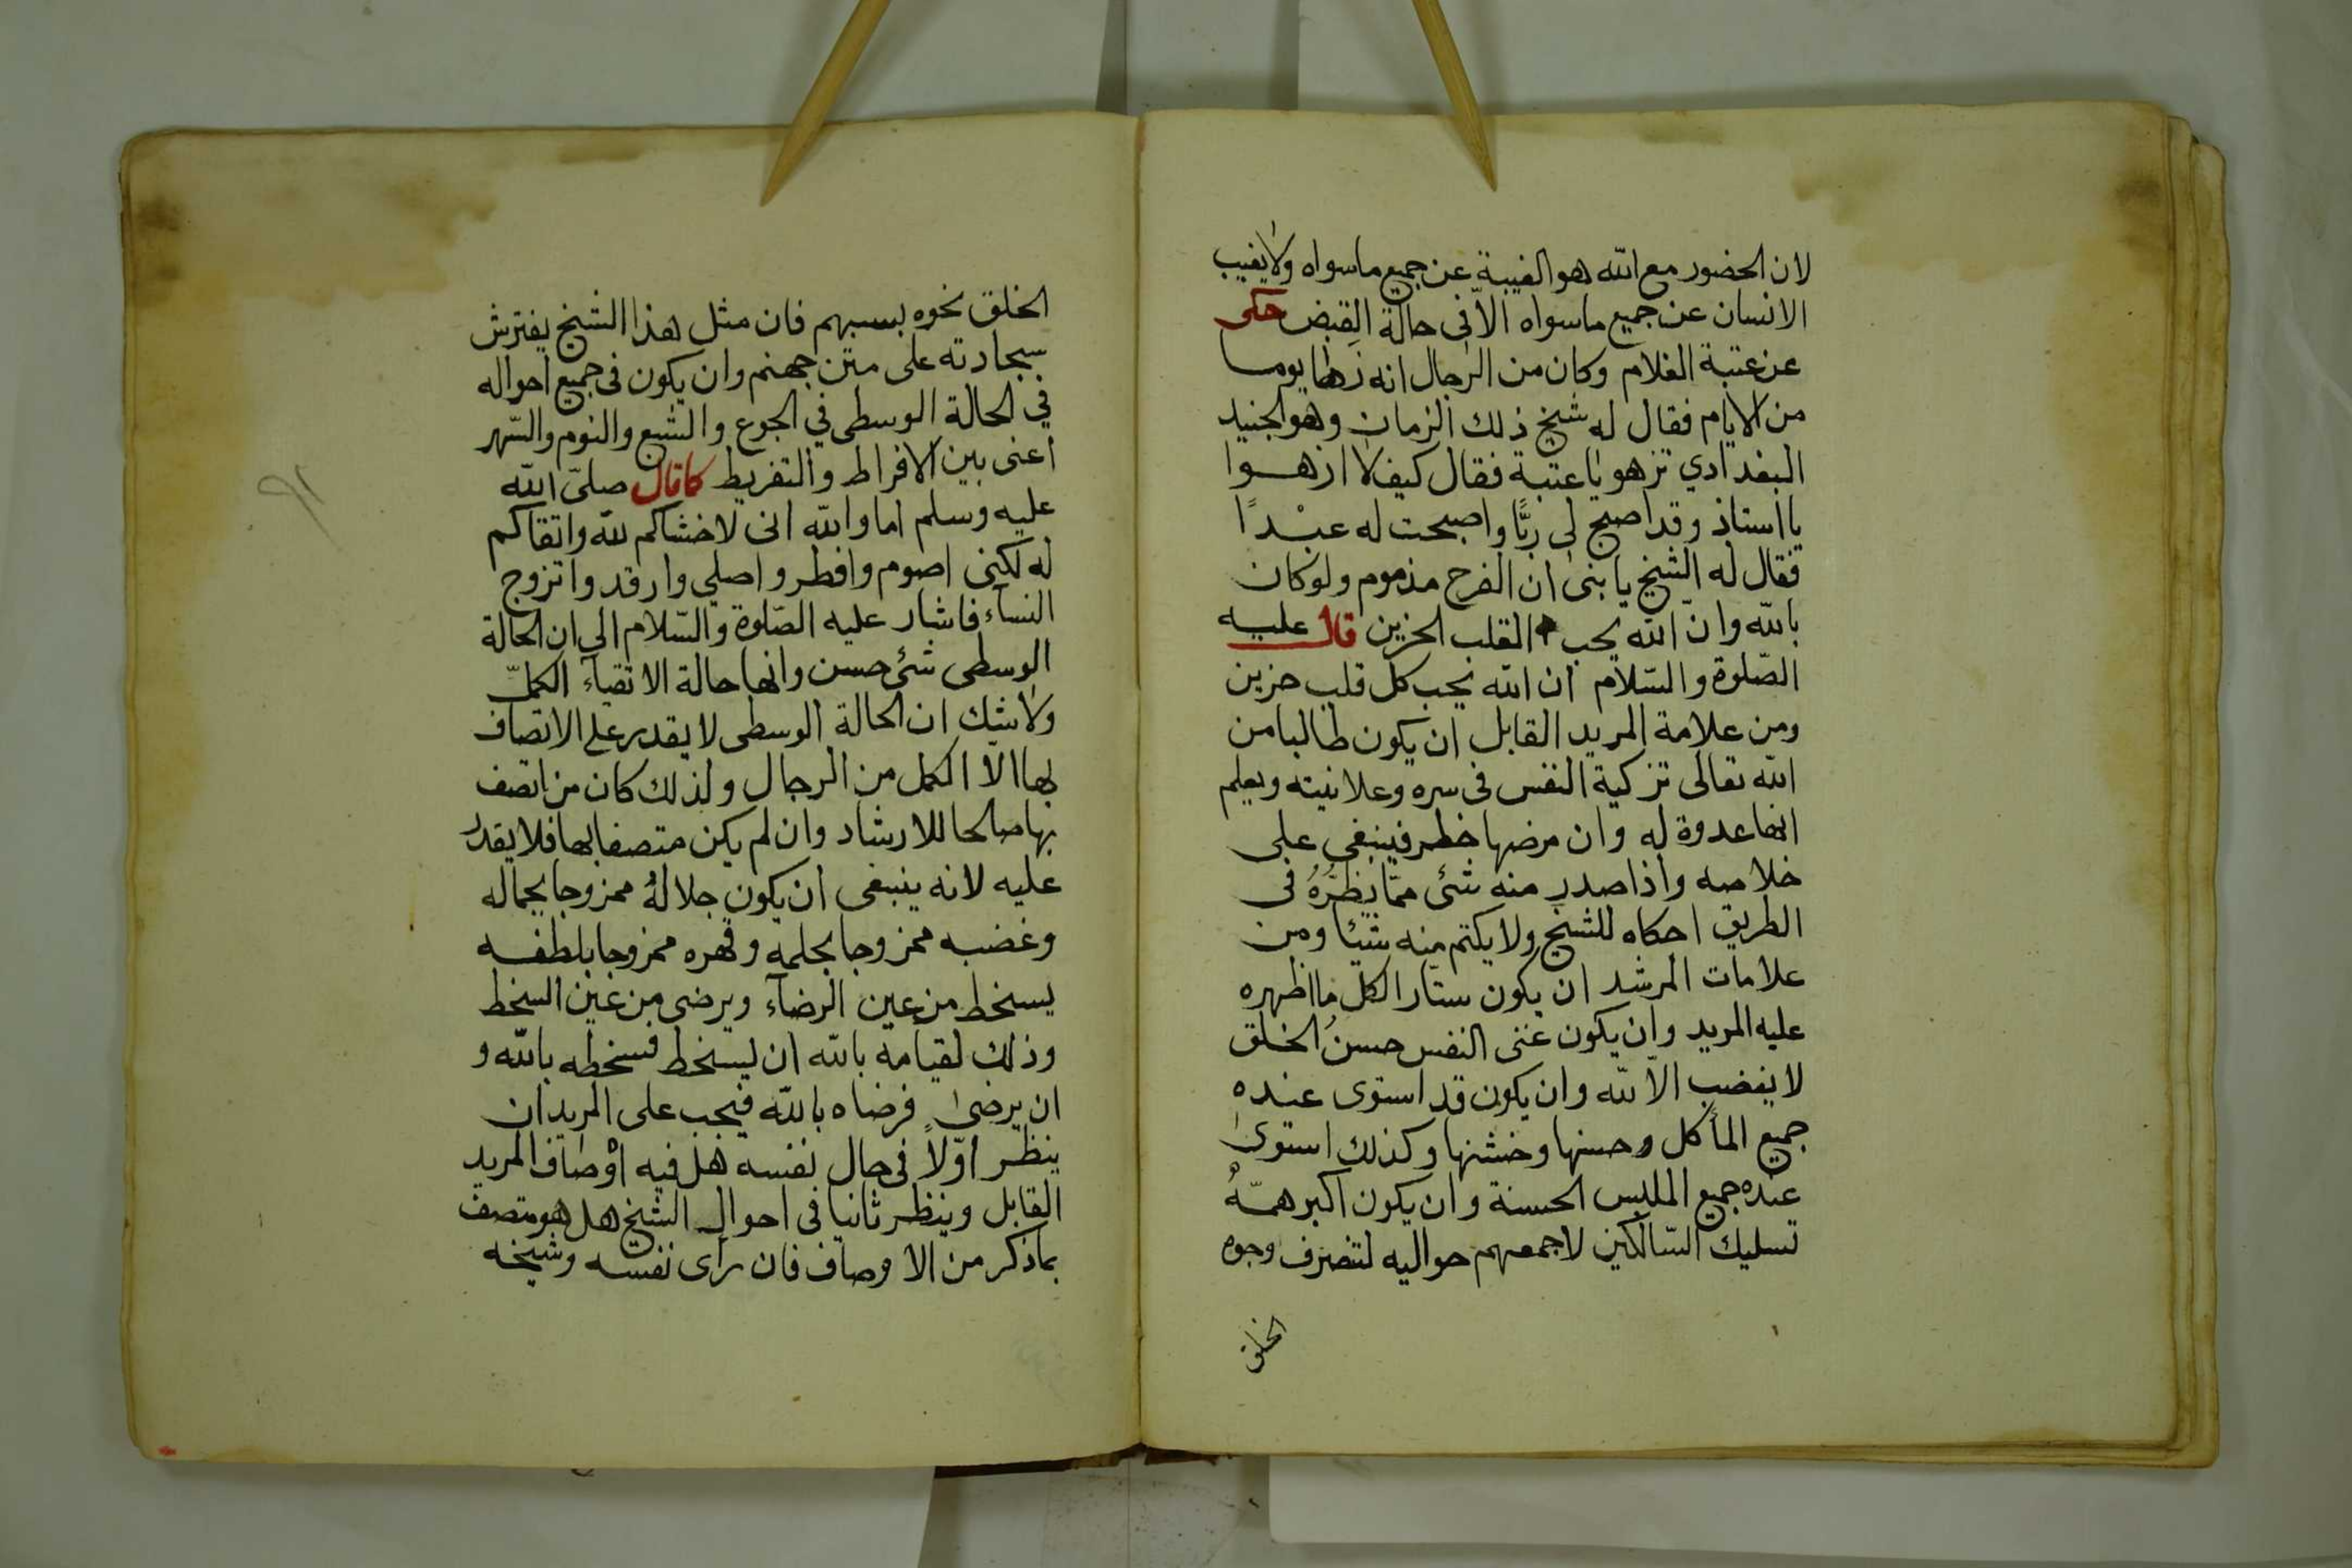 لان الحضور مع الله هو الغيبة عن جميع ماسواه ولا يغيب
الانسان عن جميع ماسواه الا فى حالة القبض حكى
عن عتبة الغلام وكان من الرجال انه زها يوما
من الايام فقال له شيخ ذلك الزمان وهو الجنيد
البغدادي تزهو يا عتبة فقال كيف لا ازهوا
يا استاذ وقد اصبح لى ربًّا واصبحت له عبْدًا
فقال له الشيخ يا بنى ان الفرح مذموم ولو كان
بالله وانّ الله يحب القلب الحزين قال عليه
الصّلوة والسّلام ان الله يحب كل قلب حزين
ومن علامة المريد القابل ان يكون طالبا من
الله تعالى تزكية النفس فى سره وعلانيته ويعلم
انها عدوة له وان مرضها خطر فينبغى على
خلاصه واذا صدر منه شئ ممّا يضُرُّهُ فى
الطريق احكاه للشيخ ولا يكتم منه شيئا ومن
علامات المرشد ان يكون ستارا لكل ما اظهره
عليه المريد وان يكون غنى النفس حسنُ الخلق
لا يغضب الا لله وان يكون قد استوى عنده
جميع المأكل وحسنها وخشنها وكذلك استوى
عنده جميع الملبس الحسنة وان يكون اكبر همّهُ
تسليك السّالكين لا جمعهم حواليه لتصرف وجوه
الخلق
الخلق نحوه بسببهم فان مثل هذا الشيخ يفترش
سجادته على متن جهنم وان يكون فى جميع احواله
في الحالة الوسطى في الجوع والشبع والنوم والسّهر
اعنى بين الافراط والتفريط كما قال صلّى الله
عليه وسلم اما والله انى لاخشاكم لله واتقاكم
له لكنى اصوم وافطر واصلي وارقد واتزوج
النساء فاشار عليه الصّلوة والسّلام الي ان الحالة
الوسطى شئ حسن وانها حالة الاتقياء الكمّل
ولا شك ان الحالة الوسطى لا يقدر على الاتصاف
بها الّا الكمل من الرجال ولذلك كان من اتصف
بها صالحا للارشاد وان لم يكن متصفا بها فلا يقدر
عليه لانه ينبغى ان يكون جلالهُ ممزوجا بجماله
وغضبه ممزوجا بحلمه وقهره ممزوجا بلطفه
يسخط من عين الرضآء ويرضى من عين السخط
وذلك لقيامه بالله ان يسخط فسخطه بالله و
ان يرضى فرضاه بالله فيجب على المريد ان
ينظر اوّلاً فى حال نفسه هل فيه اوْصاف المريد
القابل وينظر ثانيا فى احوال الشيخ هل هو متصف
بما ذكر من الاوصاف فان رأى نفسه وشيخه